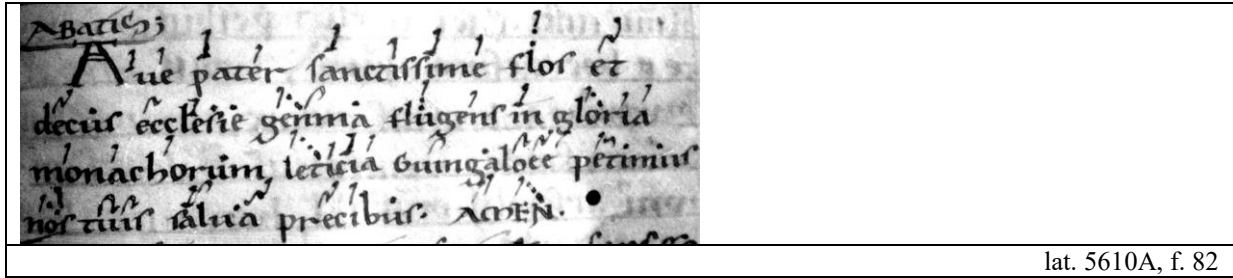 ABATIS;
Aue pater sanctissime flos et
decus ecclesie gemma flugens in gloria
monachorum leticia Guingaloee petimus
nos tuis salua precibus. AMEN.
lat. 5610A, f. 82